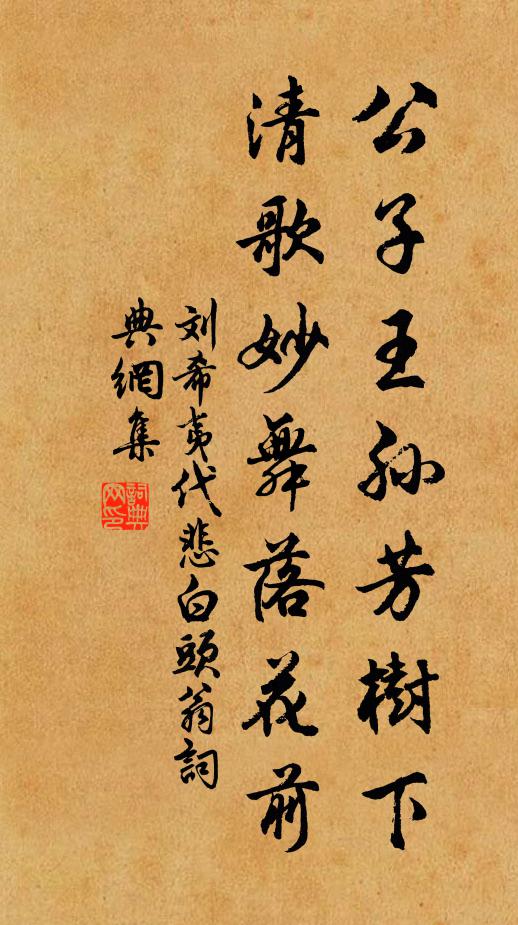 公子王孙芳樹下
清歌妙舞落花前
刘希夷代悲白頭翁詞
典網集
詞典
网印